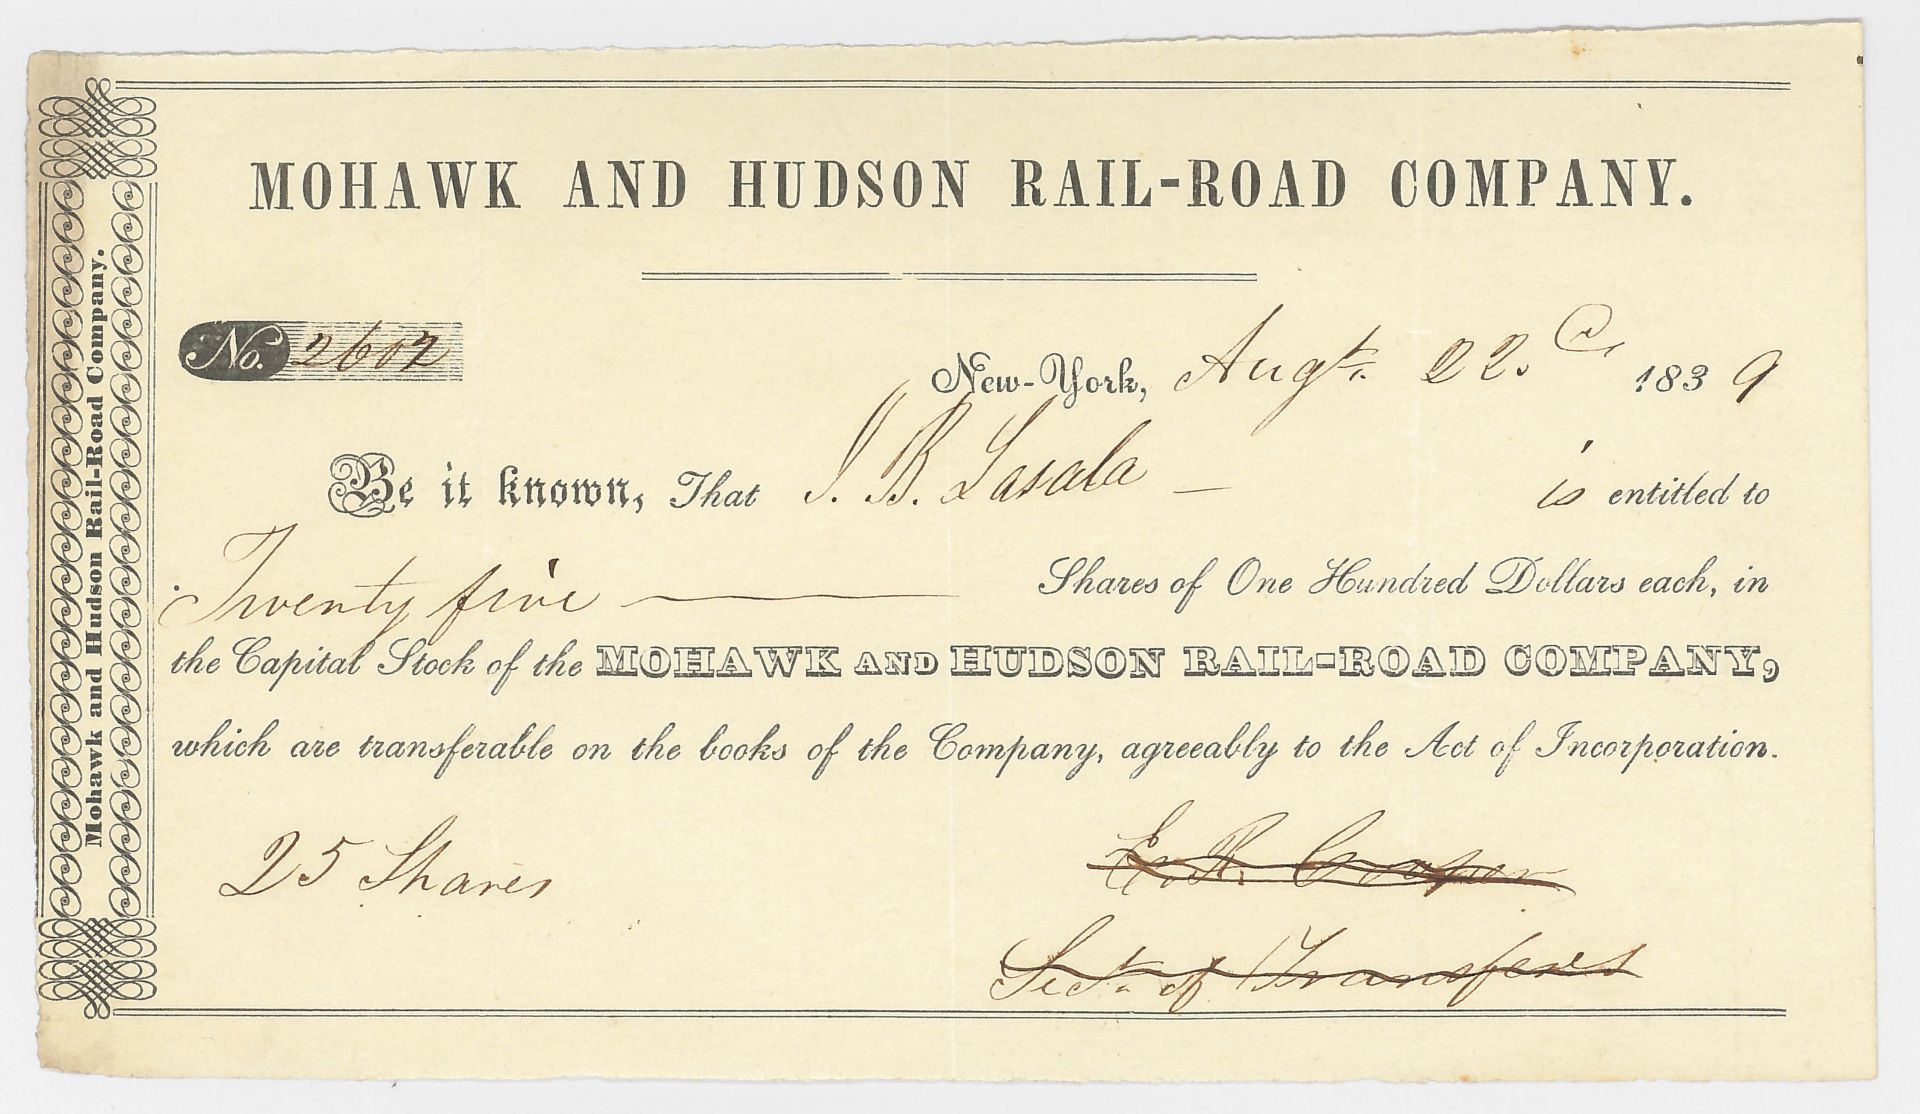 MOHAWK AND HUDSON RAIL-ROAD COMPANY.
Mohawk and Hudson Rail-Road Company.
No. 2602
New-York, Augt. 22d 1839
Be it known, That J. B. Lasala — is entitled to
Twenty five — Shares of One Hundred Dollars each, in
the Capital Stock of the MOHAWK AND HUDSON RAIL-ROAD COMPANY,
which are transferable on the books of the Company, agreeably to the Act of Incorporation.
25 Shares
Cooper
of Transfers